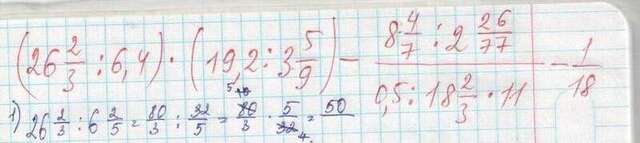 (26 2/3 : 6,4) · (19,2 : 3 5/9) - (8 4/7 : 2 26/77)/(0,5 : 18 2/3 · 11) - 1/18
1) 26 2/3 : 6 2/5 = 80/3 : 32/5 = 80/3 · 5/32 = 50